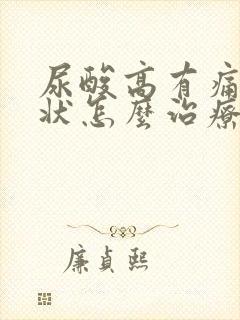 尿酸高有痛
狀怎麼治療
廉貞熙